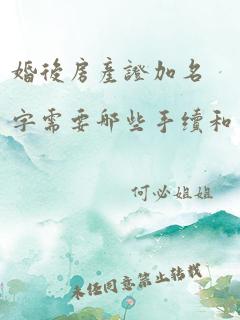 婚後房產證加名
字需要哪些手續和
何必姐姐
未经同意禁止转载